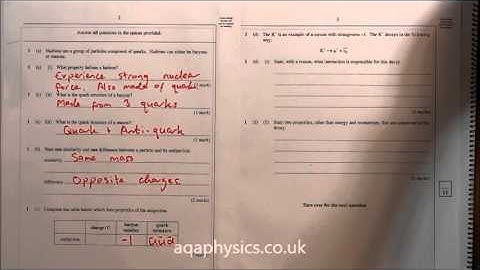 2
Answer all questions in the spaces provided.
1 (a) Hadrons are a group of particles composed of quarks. Hadrons can either be baryons
or mesons.
1 (a) (i) What property defines a hadron?
Experience strong nuclear
force. Also made of quarks
(1 mark)
1 (a) (ii) What is the quark structure of a baryon?
Made from 3 quarks
(1 mark)
1 (a) (iii) What is the quark structure of a meson?
Quark + Anti-quark
(1 mark)
1 (b) State one similarity and one difference between a particle and its antiparticle.
similarity Same mass
difference Opposite charges
(2 marks)
1 (c) Complete the table below which lists properties of the antiproton.
charge / C baryon number quark structure
antiproton -1 ūūd̄
3
1 (d) The K⁻ is an example of a meson with strangeness -1. The K⁻ decays in the following
way:
1 (d) (i) State, with a reason, what interaction is responsible for this decay.
(2 marks)
1 (d) (ii) State two properties, other than energy and momentum, that are conserved in this
decay.
(2 marks)
Turn over for the next question
aqaphysics.co.uk